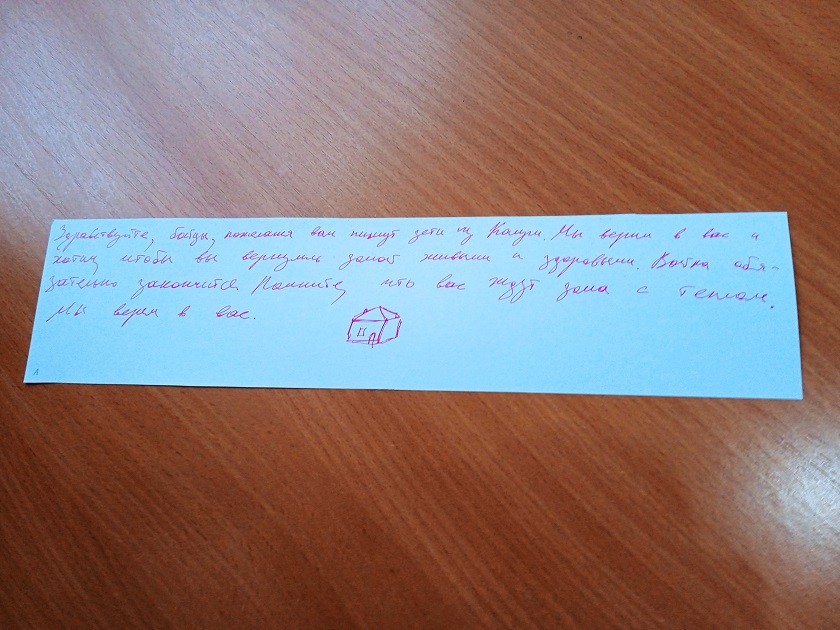 Здравствуйте, бойцы, пожелания вам пишут дети из Калуги. Мы верим в вас и
хотим, чтобы вы вернулись домой живыми и здоровыми. Война обя-
зательно закончится. Помните, что вас ждут дома с теплом.
Мы верим в вас.
1